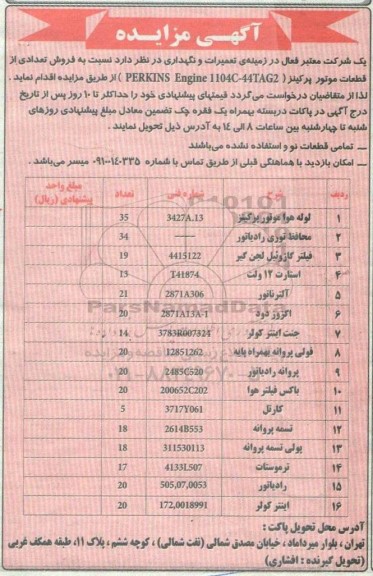 آگهی مزایده
یک شرکت معتبر فعال در زمینه‌ی تعمیرات و نگهداری در نظر دارد نسبت به فروش تعدادی از
قطعات موتور پرکینز ( PERKINS Engine 1104C-44TAG2 ) از طریق مزایده اقدام نماید .
لذا از متقاضیان درخواست می‌گردد قیمتهای پیشنهادی خود را حداکثر تا ۱۰ روز پس از تاریخ
درج آگهی در پاکات دربسته بهمراه یک فقره چک تضمین معادل مبلغ پیشنهادی روزهای
شنبه تا چهارشنبه بین ساعات ۸ الی ۱۴ به آدرس ذیل تحویل نمایند .
ــ تمامی قطعات نو و استفاده نشده می‌باشند
ــ امکان بازدید با هماهنگی قبلی از طریق تماس با شماره ۰۹۱۰۰۱۴۰۳۳۵ میسر می‌باشد .
ردیف شماره فنی تعداد مبلغ واحد پیشنهادی (ریال)
۱ لوله هوا موتور پرکینز 3427A.13 35
۲ محافظ توری رادیاتور —— 34
۳ فیلتر گازوئیل لجن گیر 4415122 19
۴ استارت ۱۲ ولت T41874 13
۵ آلترناتور 2871A306 21
۶ اگزوز دود 2871A13A-1 20
۷ جنت اینتر کولر 3783R007324 14
۸ فولی پروانه بهمراه پایه 12851262 20
۹ پروانه رادیاتور 2485C520 20
۱۰ باکس فیلتر هوا 200652C202 20
۱۱ کارتل 3717Y061 5
۱۲ تسمه پروانه 2614B553 18
۱۳ پولی تسمه پروانه 311530113 18
۱۴ ترموستات 4133L507 17
۱۵ رادیاتور 505,07,0053 20
۱۶ اینتر کولر 172,0018991 20
آدرس محل تحویل پاکت :
تهران ، بلوار میرداماد ، خیابان مصدق شمالی (نفت شمالی) ، کوچه ششم ، پلاک ۱۱، طبقه همکف غربی
(تحویل گیرنده : افشاری)